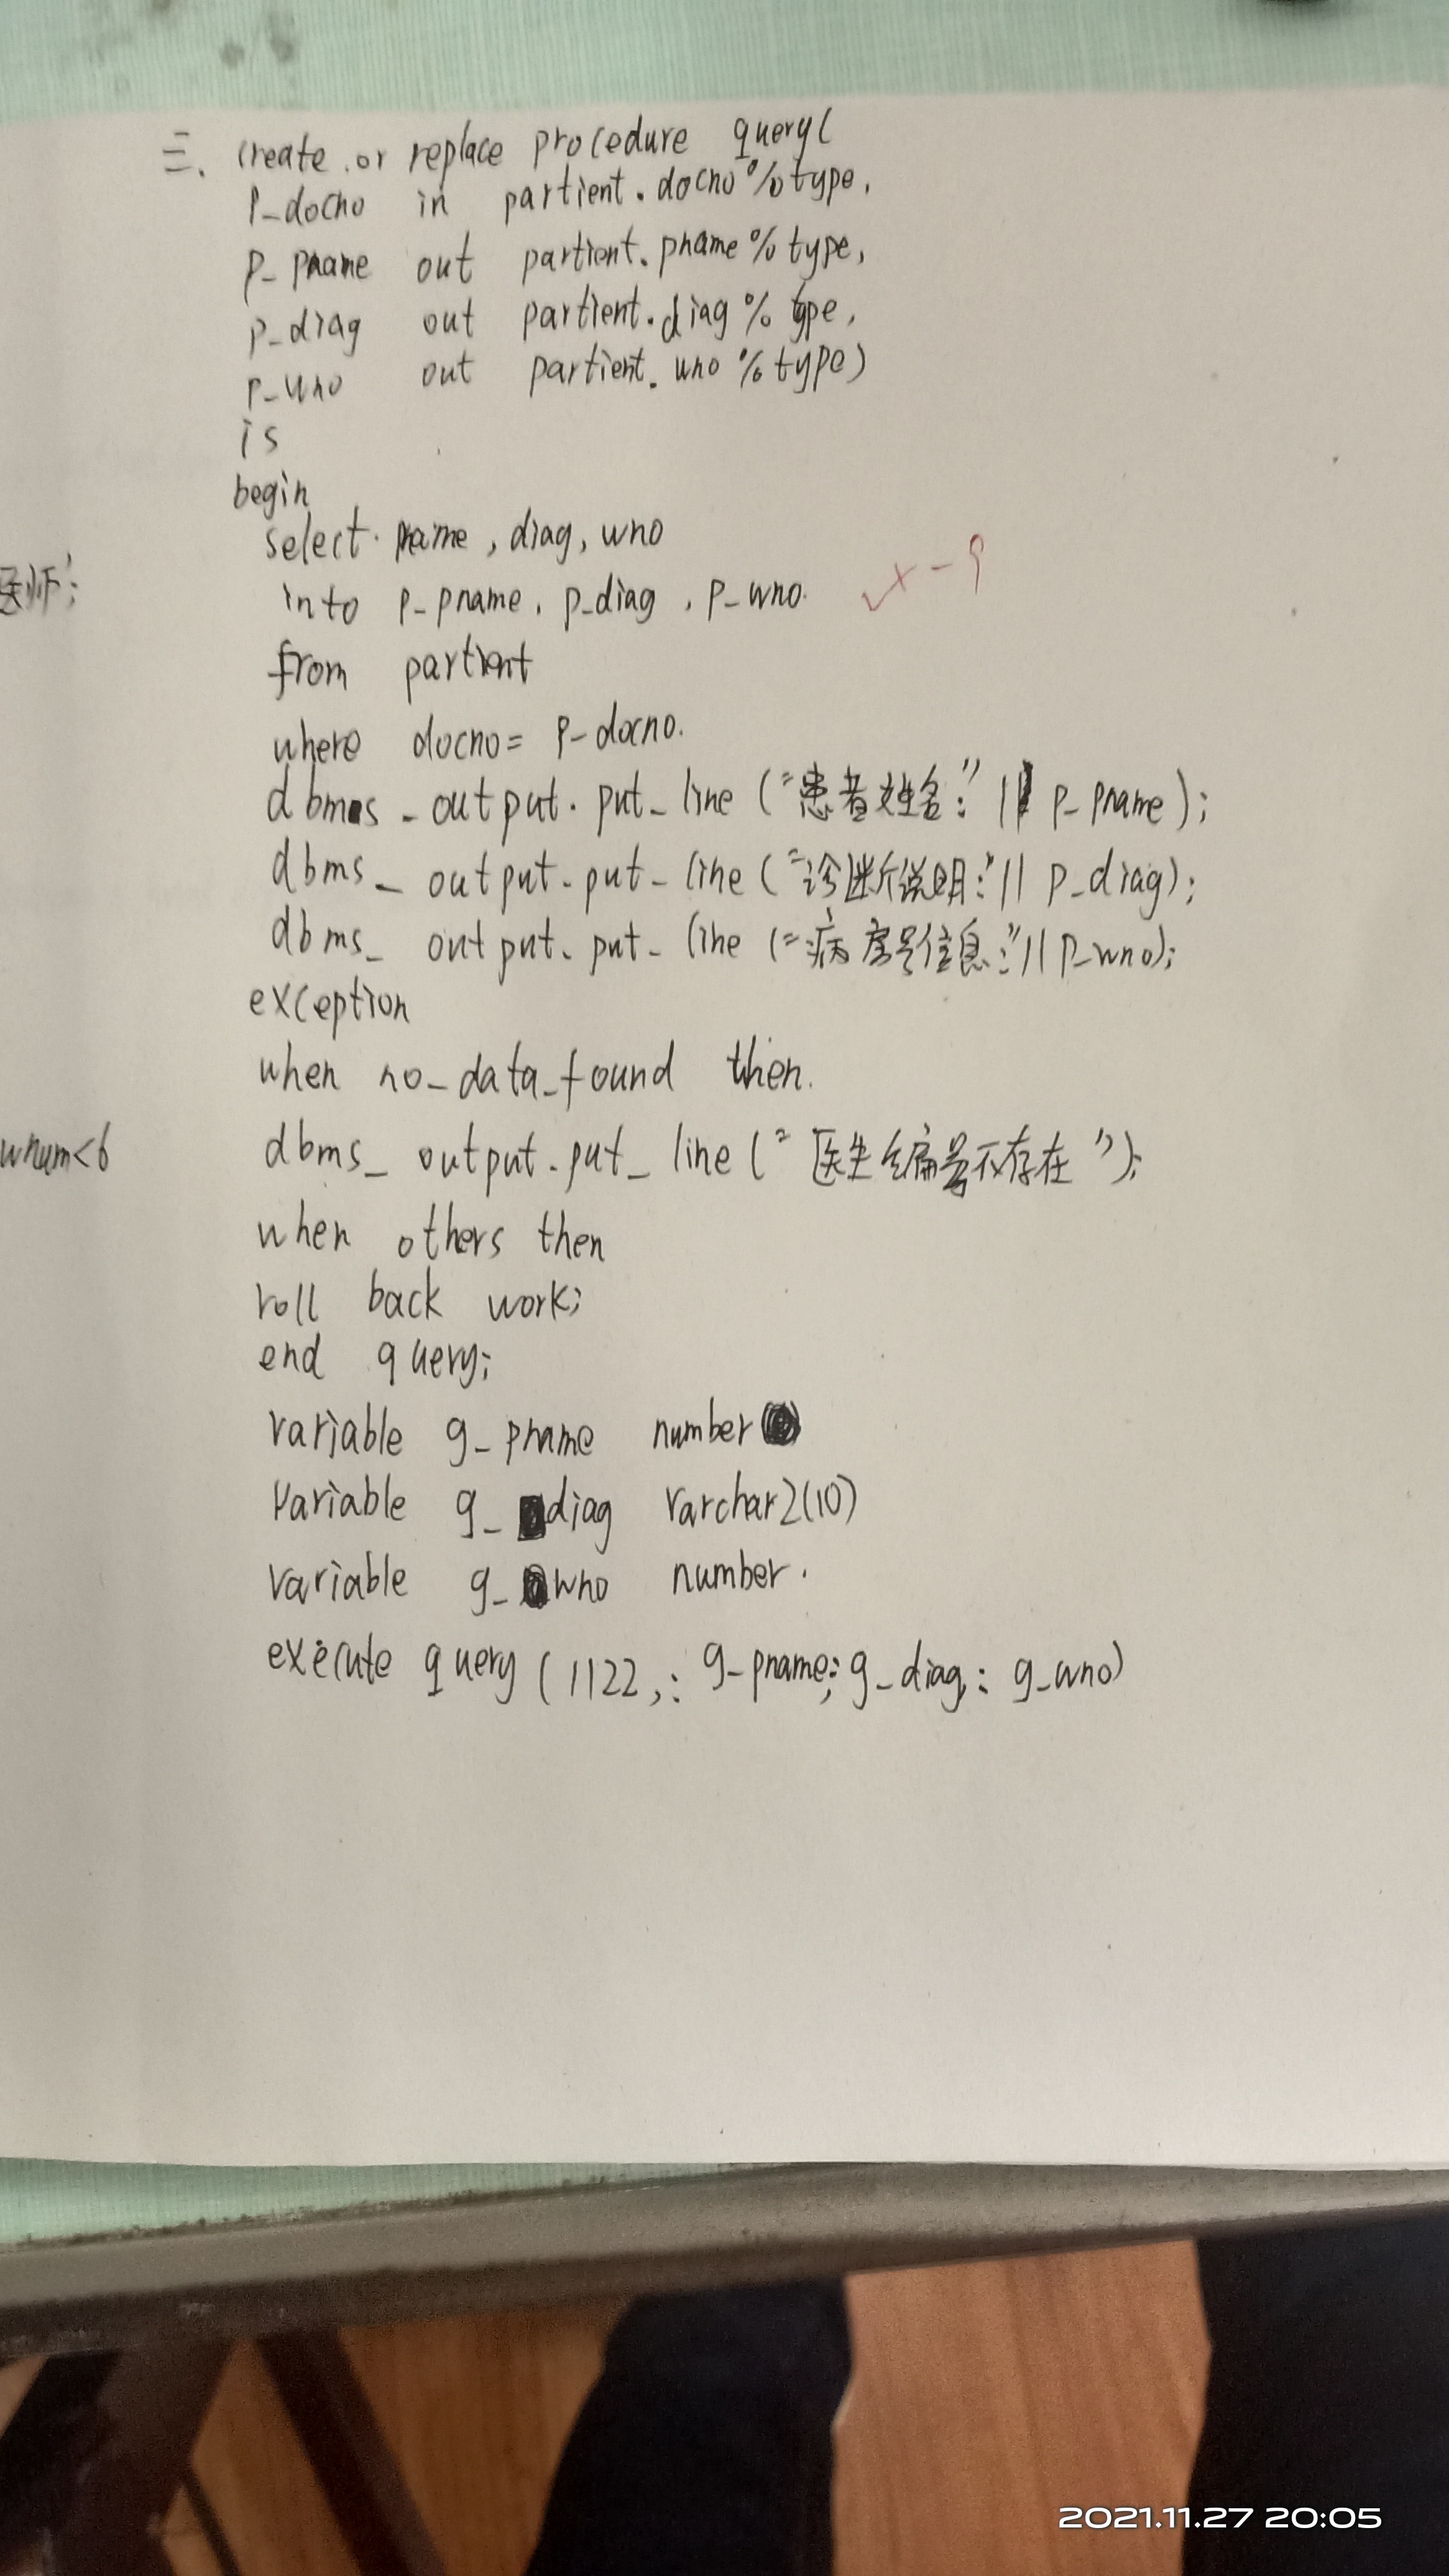 三、create or replace procedure query(
p_docno in partient.docno%type,
p_pname out partient.pname%type,
p_diag out partient.diag%type,
p_wno out partient.wno%type)
is
begin
select pname, diag, wno
医师';
into p_pname, p_diag, p_wno.
from partient
where docno = p_docno.
dbms_output.put_line("患者姓名:"|| p_pname);
dbms_output.put_line("诊断说明:"|| p_diag);
dbms_output.put_line("病房号信息:"|| p_wno);
exception
when no_data_found then.
wnum<6
dbms_output.put_line("医生编号不存在");
when others then
roll back work;
end query;
variable g_pname number
variable g_diag varchar2(10)
variable g_wno number.
execute query (1122,: g_pname,: g_diag,: g_wno)
2021.11.27 20:05